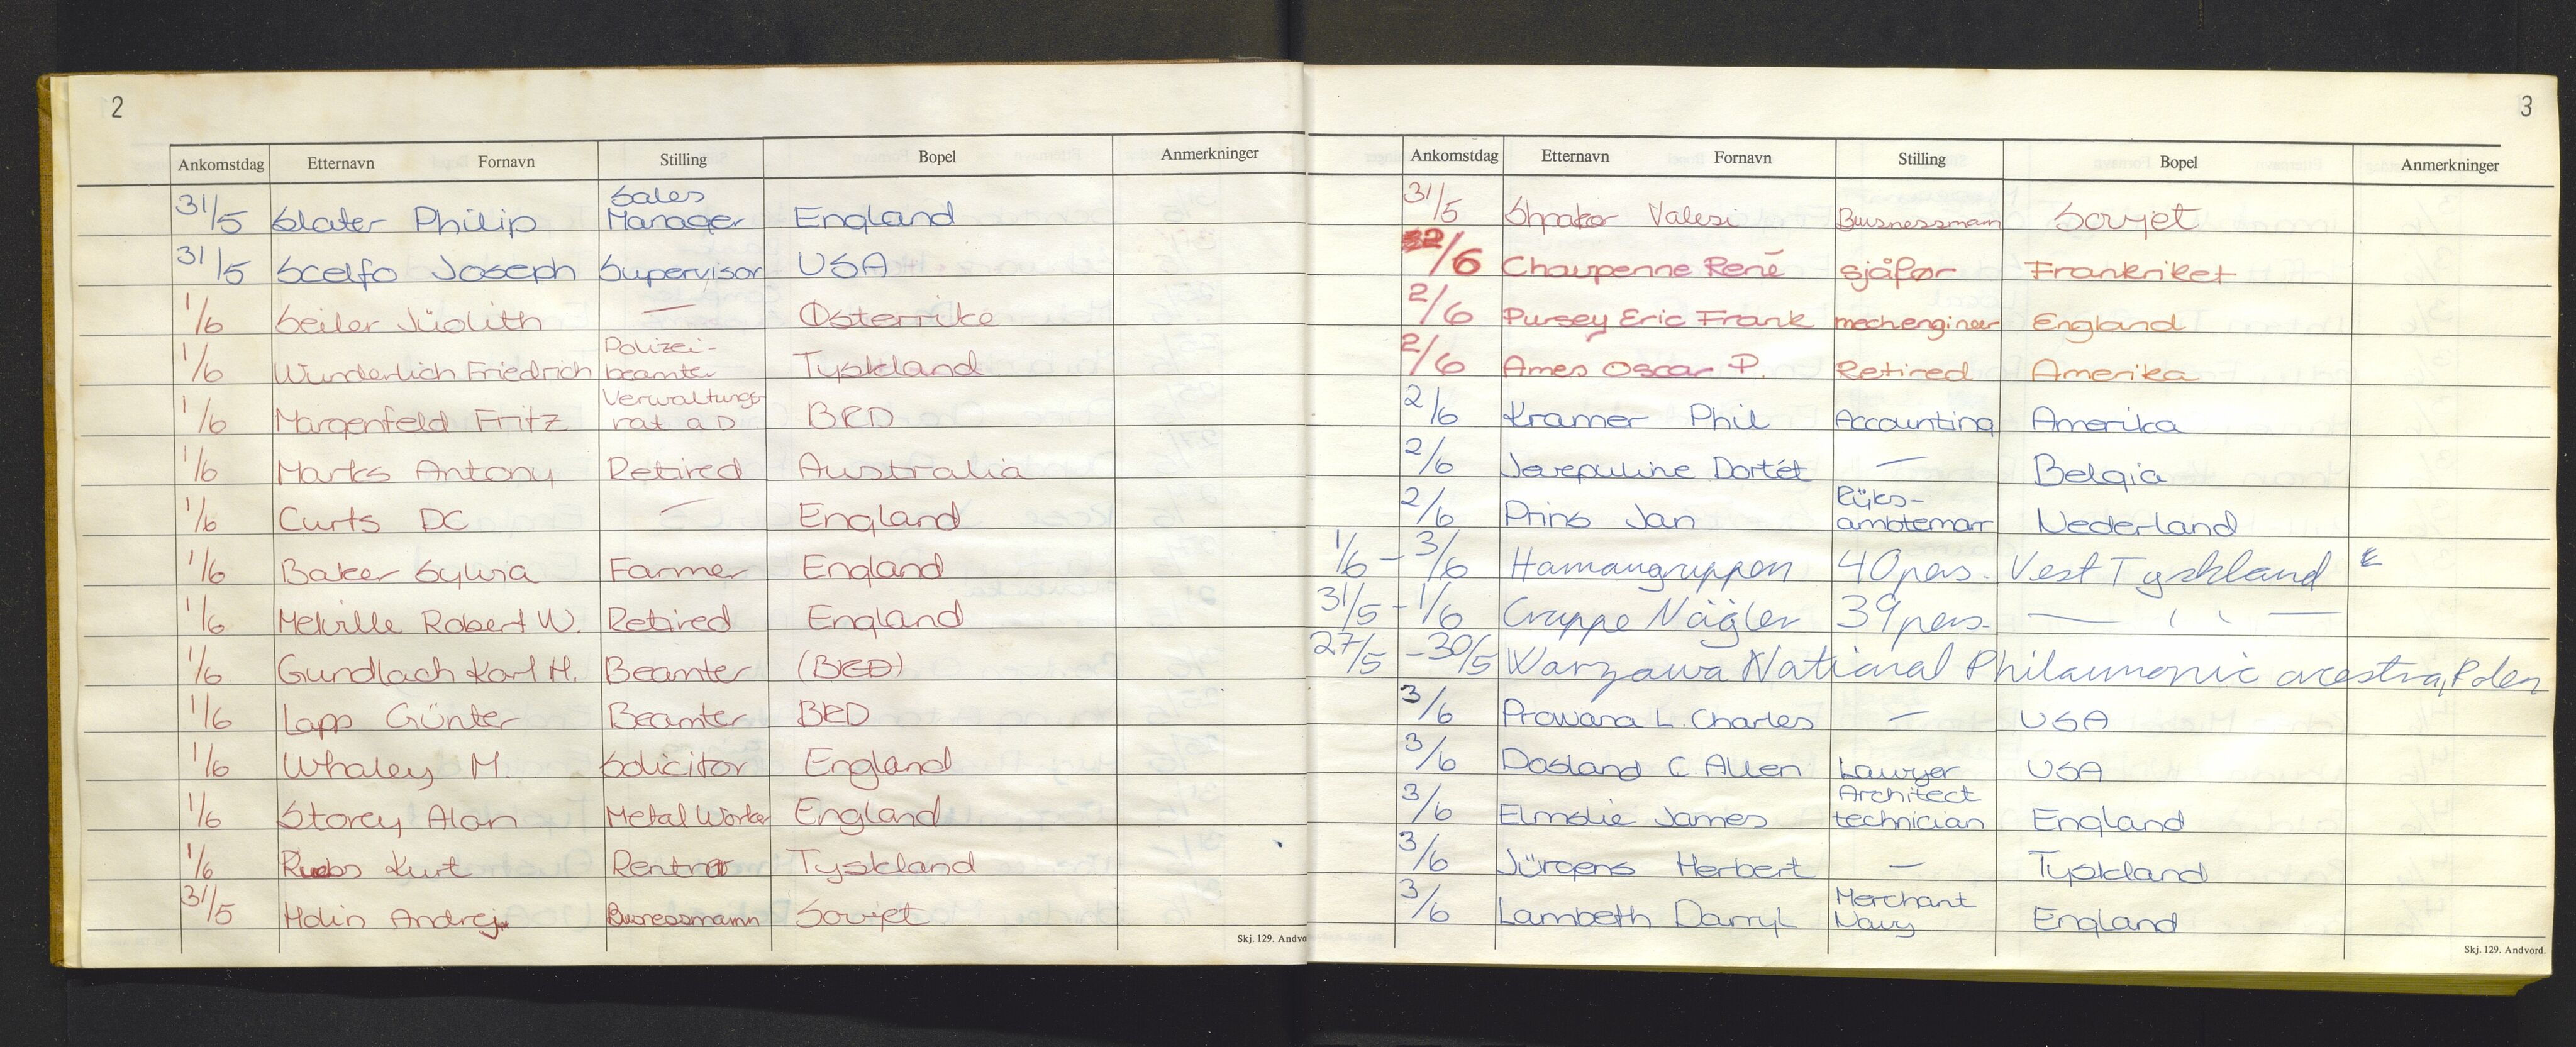 2
Ankomstdag Etternavn Fornavn Stilling Bopel Anmerkninger
31/5 Slater Philip Sales Manager England
31/5 Scelfo Joseph Supervisor USA
1/6 Seiler Jüdith — Østerrike
1/6 Wunderlich Friedrich Polizei-beamter Tyskland
1/6 Margenfeld Fritz Verwaltungs-rat a D BRD
1/6 Marks Antony Retired Australia
1/6 Curts DC — England
1/6 Baker Sylvia Farmer England
1/6 Melville Robert W. Retired England
1/6 Gundlach Karl H. Beamter (BRD)
1/6 Lapp Günter Beamter BRD
1/6 Whaley M. Solicitor England
1/6 Storey Alan Metal Worker England
1/6 Kurt Tyskland
31/5 Holin Andrej Busnessmann Sovjet
Skj. 129. Andvo
3
Ankomstdag Etternavn Fornavn Stilling Bopel Anmerkninger
31/5 Shpakor Valesi Busnessmam Sovjet
2/6 Chaupenne René sjåfør Frankriket
2/6 Pursey Eric Frank mech.engineer England
2/6 Ames Oscar P. Retired Amerika
2/6 Kramer Phil Accounting Amerika
2/6 Dortét — Belgia
2/6 Prins Jan Rijks-ambtemarr Nederland
1/6 - 3/6 Hamangruppen 40 pers. Vest Tyskland
31/5 - 1/6 Gruppe Nägler 39 pers. — " —
27/5 - 30/5 Warzawa National Philarmonic orcestra, Polen
3/6 Prowana L. Charles — USA
3/6 Dosland C. Allen Lawyer USA
3/6 Elmslie James Architect technician England
3/6 Jürgens Herbert — Tyskland
3/6 Lambeth Darryl Merchant Navy England
Skj. 129. Andvord.